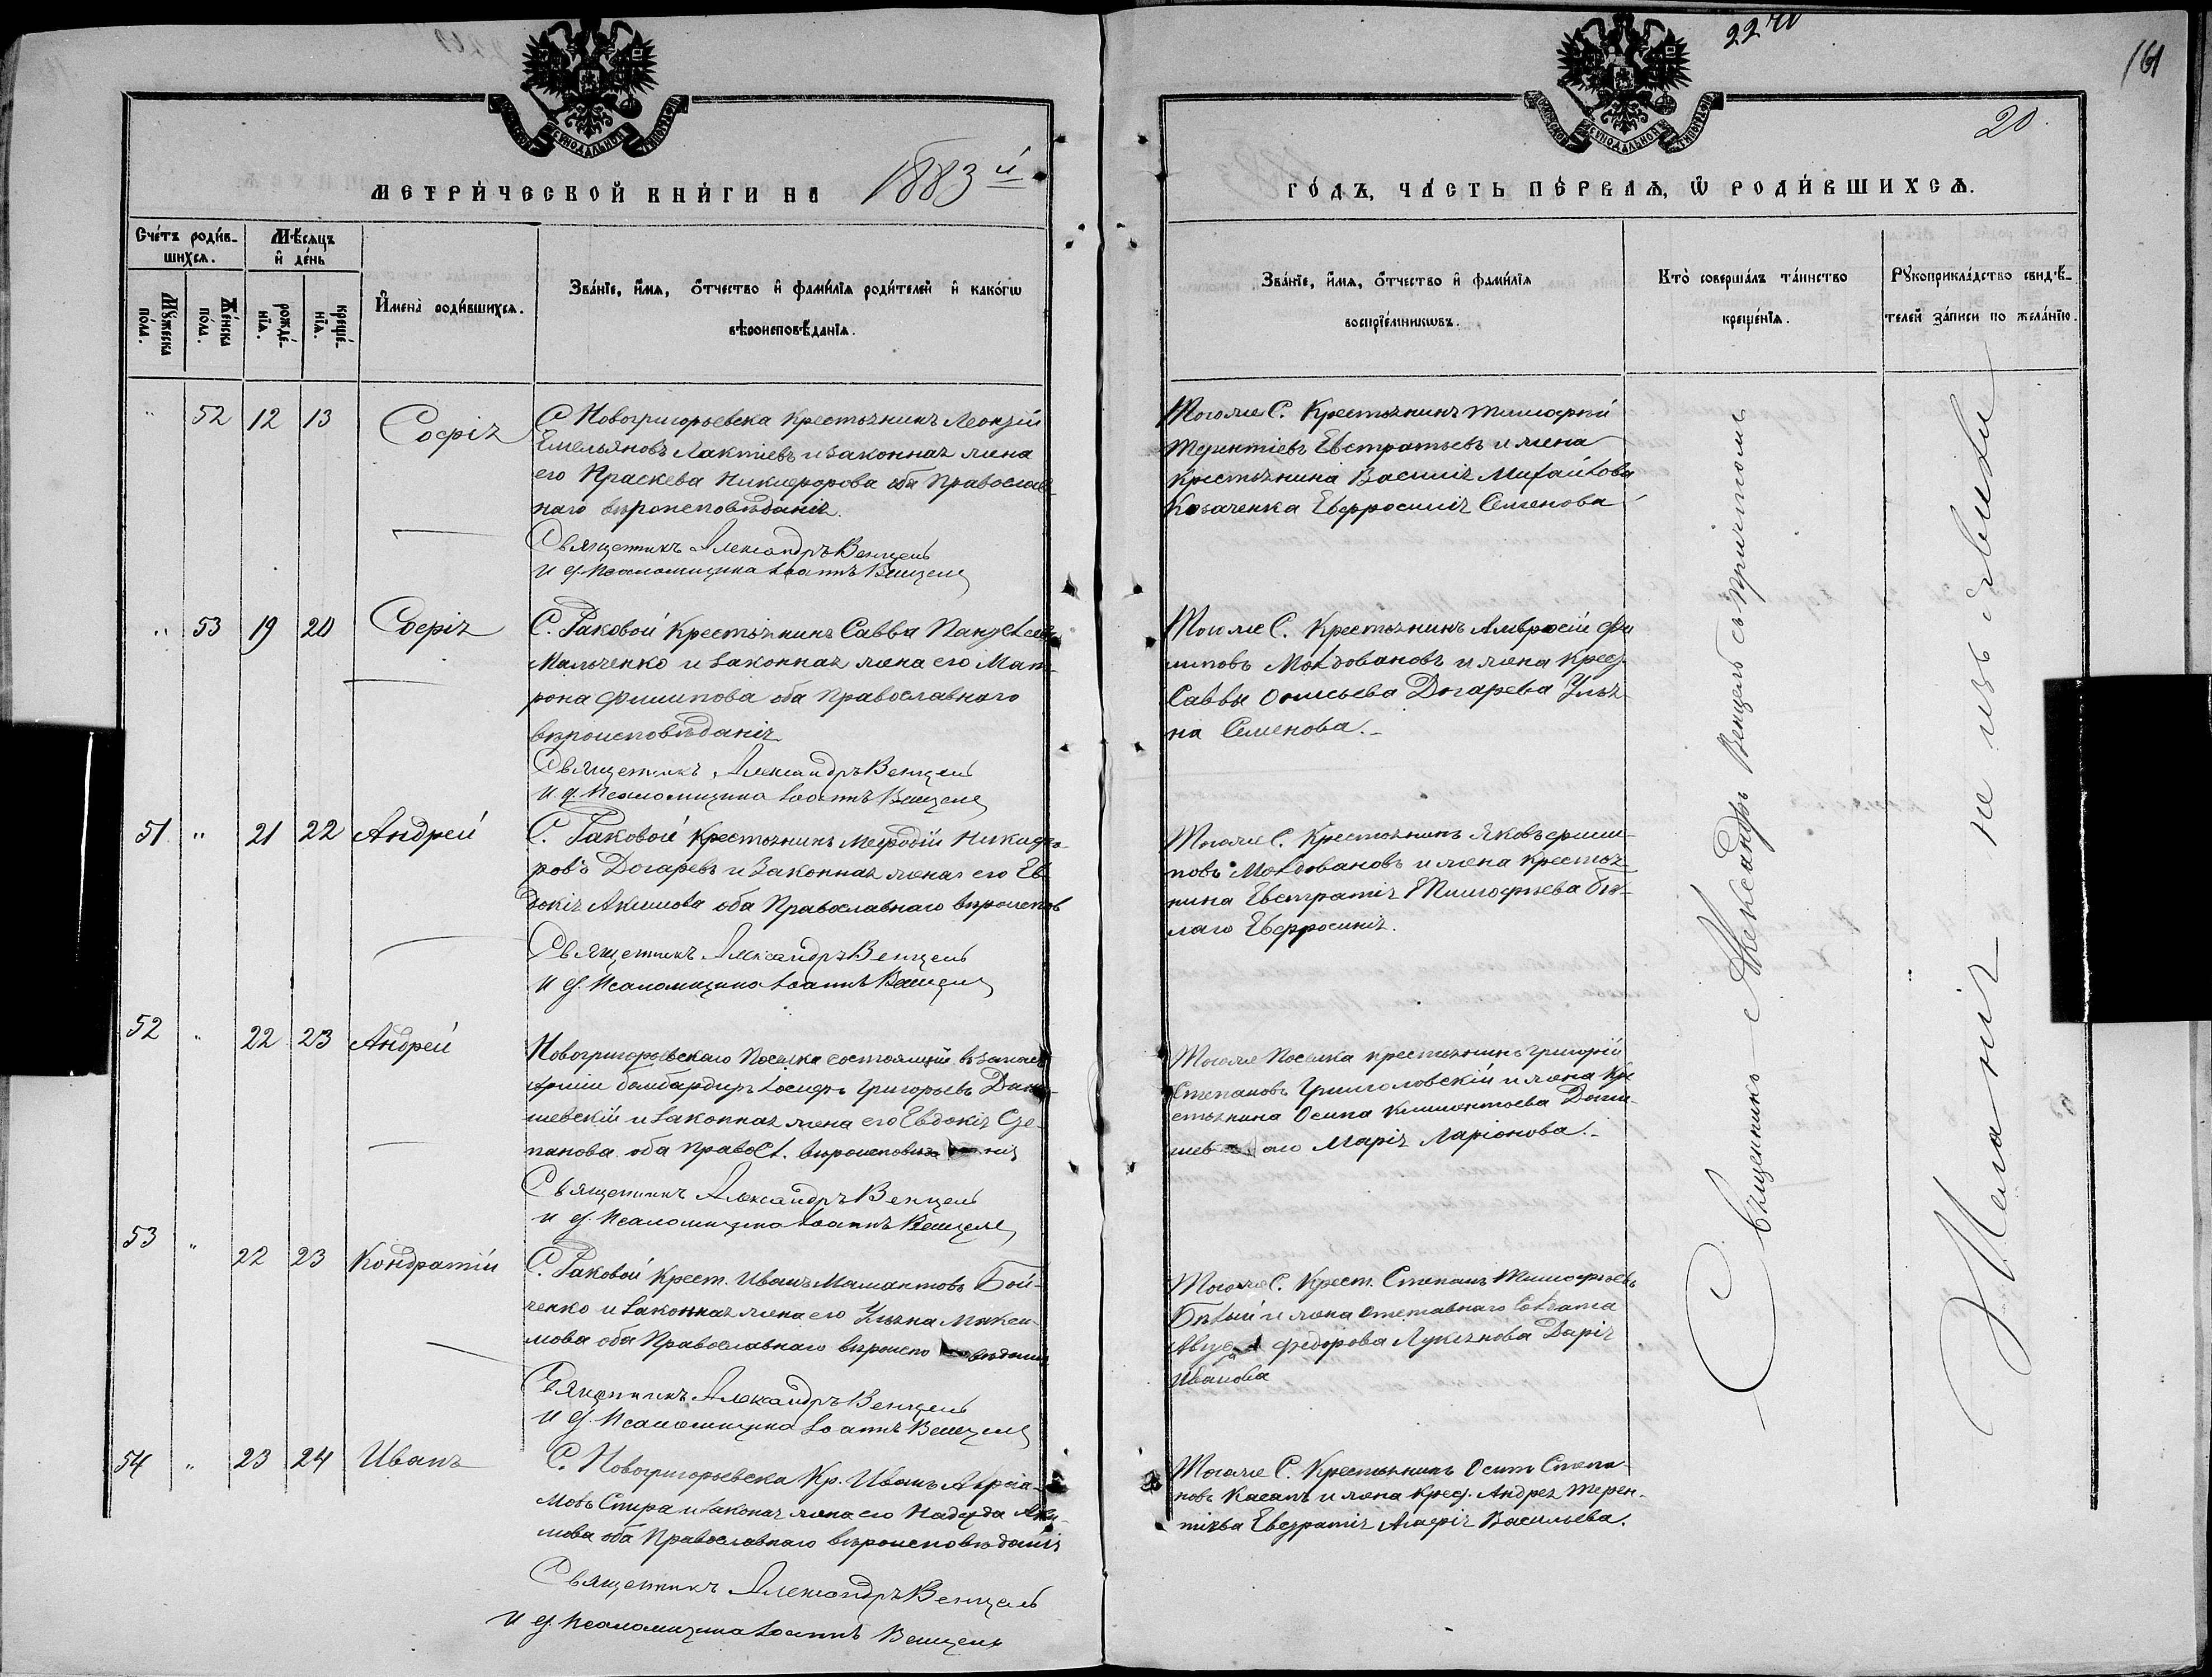 2240
161
20
МЕТРИ́ЧЕСКОЙ КНИ́ГИ НА 1883 й
ГО́ДЪ, ЧА́СТЬ ПЕ́РВАѦ, Ѡ РОДИ́ВШИХСѦ.
Сче́тъ роди́в-
шихсѧ.
Мѣ́сѧцъ
и҆ де́нь
Мꙋ́жеска
по́ла.
Же́нска
по́ла.
рожде́-
нїѧ.
креще́-
нїѧ.
И҆мена̀ роди́вшихсѧ.
Зва́нїе, и҆́мѧ, о҆́тчество и҆ фами́лїѧ роди́телей и҆ како́гѡ
вѣроисповѣ́данїѧ.
Зва́нїе, и҆́мѧ, о҆́тчество и҆ фами́лїѧ
воспрїе́мникѡвъ.
Кто̀ соверша́лъ та́инство
креще́нїѧ.
Рꙋкоприкла́дство свидѣ́-
телей за́писи по жела́нїю.
" 52 12 13 Софія
С Новогригорьевска Крестьянинъ Леонтій
Емельяновъ Лактіевъ и законная жена
его Праскева Никифорова оба Православ-
наго вѣроисповѣданія.
Священникъ Александръ Венцель
И д. Псаломщика Іоаннъ Венцель
Тогоже С. Крестьянинъ Тимофей
Терентіевъ Евстратьевъ и жена
крестьянина Василія Михайлова
Козаченка Евфросинія Семенова
" 53 19 20 Софія
С. Раковой Крестьянинъ Савва
Мальченко и законная жена его Мат-
рона Филипова оба Православнаго
вѣроисповѣданія
Священникъ Александръ Венцель
И. д. Псаломщика Іоаннъ Венцель
Тогоже С. Крестьянинъ Амвросій Фи
липовъ Молдовановъ и жена крест.
Саввы Догарева Улья
на Семенова.
51 " 21 22 Андрей
С. Раковой Крестьянинъ Мефодій Никифо
ровъ Догаревъ и Законная жена его Ев
докія Акимова оба Православнаго вѣроиспов
Священникъ Александръ Венцель
И д. Псаломщика Іоаннъ Венцель
Тогоже С. Крестьянинъ Яковъ Фили-
повъ Молдовановъ и жена крестья
нина Евстратія Тимофѣева Бѣ-
лаго Евфросинія.
52 " 22 23 Андрей
Новогригорьевскаго Поселка состоящій въ запасѣ
арміи бомбардиръ Іосифъ Григорьевъ
шевскій и законная жена его Евдокія Сте
панова оба Правосл. вѣроисповѣданія
Священникъ Александръ Венцель
И д. Псаломщика Іоаннъ Венцель
Тогоже Поселка крестьянинъ Григорій
Степановъ и жена кре
стьянина Осипа Климентьева
Марія Ларіонова.
53 " 22 23 Кондратій
С. Раковой Крест. Иванъ Мамантовъ Бой-
ченко и Законная жена его Ульяна Макси
мова оба Православнаго вѣроисповѣданія
Священникъ Александръ Венцель
И д. Псаломщика Іоаннъ Венцель
Тогоже С. Крест. Степанъ Тимофѣевъ
Бѣлый и жена отставнаго Солдата
Федорова Лукьянова Дарія
Иванова
54 " 23 24 Иванъ
С. Новогригорьевска Кр. Иванъ
мовъ Спира и законая жена его Надежда Аки-
мова оба Православнаго вѣроисповѣданія
Священникъ Александръ Венцель
И д. Псаломщика Іоаннъ Венцель
Тогоже С. Крестьянинъ Осипъ Степа-
новъ Касапъ и жена крест. Андрея Терен-
тіева Евстратія Агафія Васильева.
Священникъ Александръ Венцель съ причтомъ
Желанія не изъявили